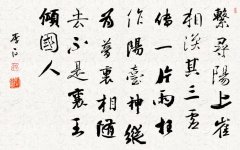 繫尋陽上崔
相渙其三虛
傳一片雨枉
作陽臺神縱
為夢裏相隨
去不是襄王
傾國人